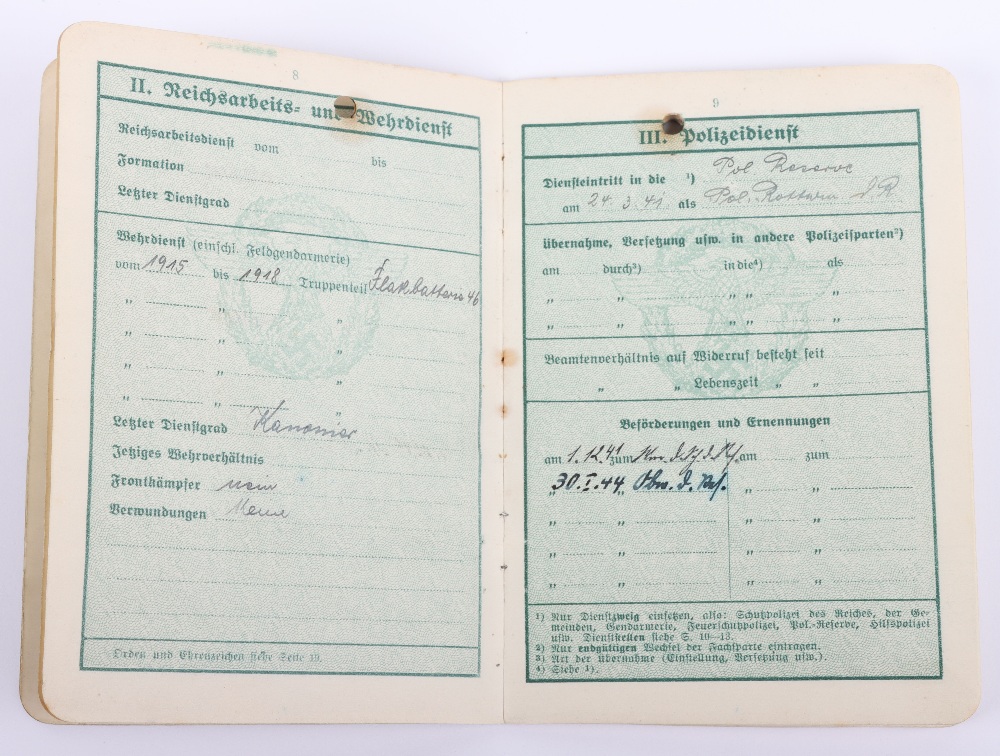 8
II. Reichsarbeits- und Wehrdienst
Reichsarbeitsdienst vom bis
Formation
Letzter Dienstgrad
Wehrdienst (einschl. Feldgendarmerie)
vom 1915 bis 1918 Truppenteil Flakbatterie 46
" " "
" " "
" " "
" " "
Letzter Dienstgrad Kanonier
Jetziges Wehrverhältnis
Frontkämpfer nein
Verwundungen Keine
Orden und Ehrenzeichen siehe Seite 19.
9
III. Polizeidienst
Diensteintritt in die ¹) Pol Reserve
am 24.3.41. als Pol.-Rottwm. d. R
übernahme, Versetzung usw. in andere Polizeisparten²)
am durch³) in die⁴) als
" " " " "
" " " " "
Beamtenverhältnis auf Widerruf besteht seit
" " Lebenszeit " "
Beförderungen und Ernennungen
am 1.12.41 zum d. d. am zum
" 30.I.44 " d. Res. " "
" " " "
" " " "
" " " "
¹) Nur Dienstzweig einsetzen, also: Schutzpolizei des Reiches, der Ge-
meinden, Gendarmerie, Feuerschutzpolizei, Pol.-Reserve, Hilfspolizei
usw. Dienststellen siehe S. 10—13.
²) Nur endgültigen Wechsel der Fachsparte eintragen.
³) Art der übernahme (Einstellung, Versetzung usw.).
⁴) Siehe ¹).